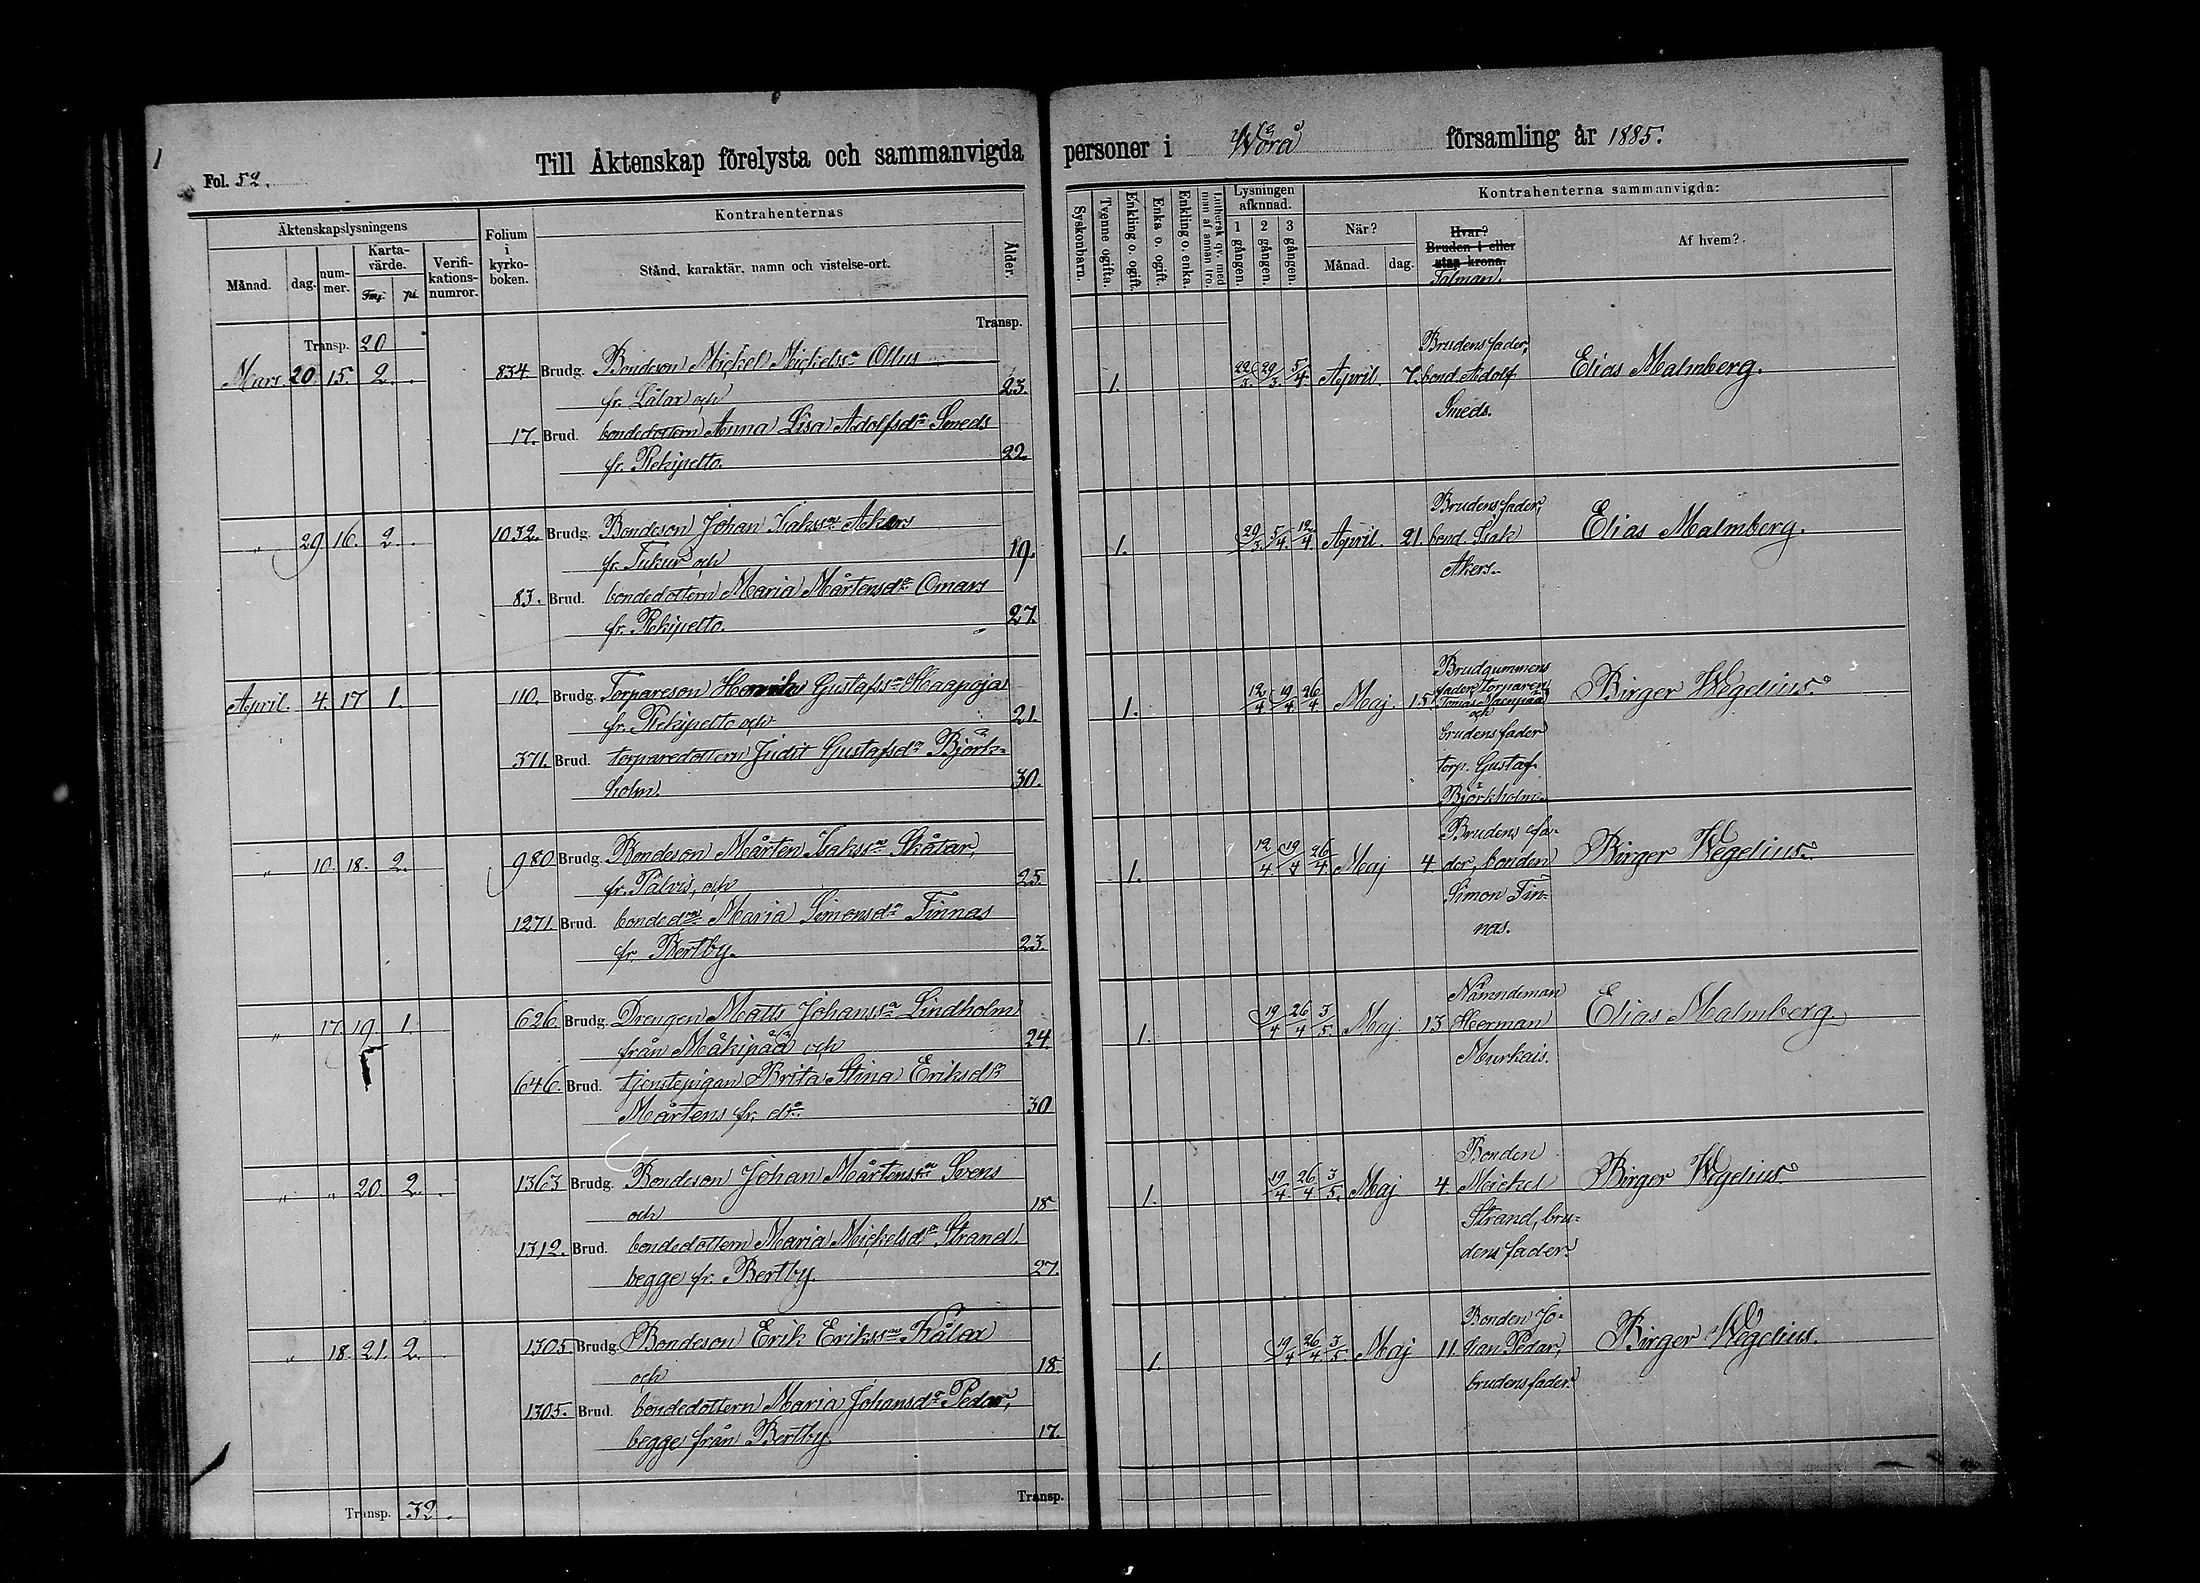 Fol. 52.
Till Äktenskap förelysta och sammanvigda personer i Wörå församling år 1885.
Äktenskapslysningens
Månad.
dag.
num-
mer.
Karta-
värde.
Fmg. pi.
Verifi-
kations-
numror.
Folium
i
kyrko-
boken.
Kontrahenternas
Stånd, karaktär, namn och vistelse-ort.
Ålder.
Syskonbarn.
Tvenne ogifta.
Enkling o. ogift.
Enka o. ogift.
Enkling o. enka.
Luthersk qv. med
man af annan tro.
Lysningen
afkunnad.
1 gången.
2 gången.
3 gången.
Kontrahenterna sammanvigda:
När?
Månad. dag.
Hvar?
Bruden i eller
utan krona.
Talman.
Af hvem?
Transp. 20
Transp.
Mars 20 15. 2. 834 Brudg. Bondeson Mickel Mickelss:n Ollus
fr. Lålax och 23.
17. Brud. bondedottern Anna Lisa Adolfsd:r Smeds
fr. Rekipelto. 22.
1. 22/3 29/3 5/4 April 7.
Brudens fader,
bond. Adolf
Smeds.
Elias Malmberg.
" 29 16. 2. 1032. Brudg. Bondeson Johan Isakss:n Akers
fr. Tukur och 19.
83. Brud. bondedottern Maria Mårtensd:r Omars
fr. Rekipelto. 27.
1. 29/3 5/4 12/4 April. 21.
Brudens fader,
bond. Isak
Akers.
Elias Malmberg.
April. 4. 17 1. 110. Brudg. Torpareson Henrik Gustafss:n Haapoja
fr. Rekipelto och 21.
371. Brud. torparedottern Judit Gustafsd:r Björk-
holm. 30.
1. 12/4 19/4 26/4 Maj. 15
Brudgummens
fader, torparen
Tomas
och
brudens fader
torp. Gustaf
Björkholm.
Birger Wegelius.
" 10. 18. 2. 980 Brudg. Bondeson Mårten Isakss:n Skåtar,
fr. Palvis, och 25.
1271. Brud. bonded:n Maria Simonsd:r Finnas
fr. Bertby. 23.
1. 12/4 19/4 26/4 Maj 4.
Brudens fa-
der, bonden
Simon Fin-
nas.
Birger Wegelius.
" 17. 19. 1. 626. Brudg. Drengen Matts Johanss:n Lindholm
från Mäkipää och 24.
646. Brud. tjenstepigan Brita Stina Eriksd:r
Mårtens fr. d:o 30
1. 19/4 26/4 3/5. Maj. 13
Nämndeman
Herman
Murkais.
Elias Malmberg
" " 20. 2. 1363 Brudg. Bondeson Johan Mårtenss:n Svens
och 18
1312. Brud. bondedottern Maria Mickelsd:r Strand.
begge fr. Bertby. 27.
1. 19/4 26/4 3/5. Maj 4.
Bonden
Mickel
Strand, bru-
dens fader.
Birger Wegelius.
" 18. 21. 2. 1305. Brudg. Bondeson Erik Erikss:n Kålax
och 18.
1305. Brud. bondedottern Maria Johansd:r Pedar,
begge från Bertby. 17.
1. 19/4 26/4 3/5 Maj 11.
Bonden Jo-
han Pedar,
brudens fader.
Birger Wegelius.
Transp. 32.
Transp.